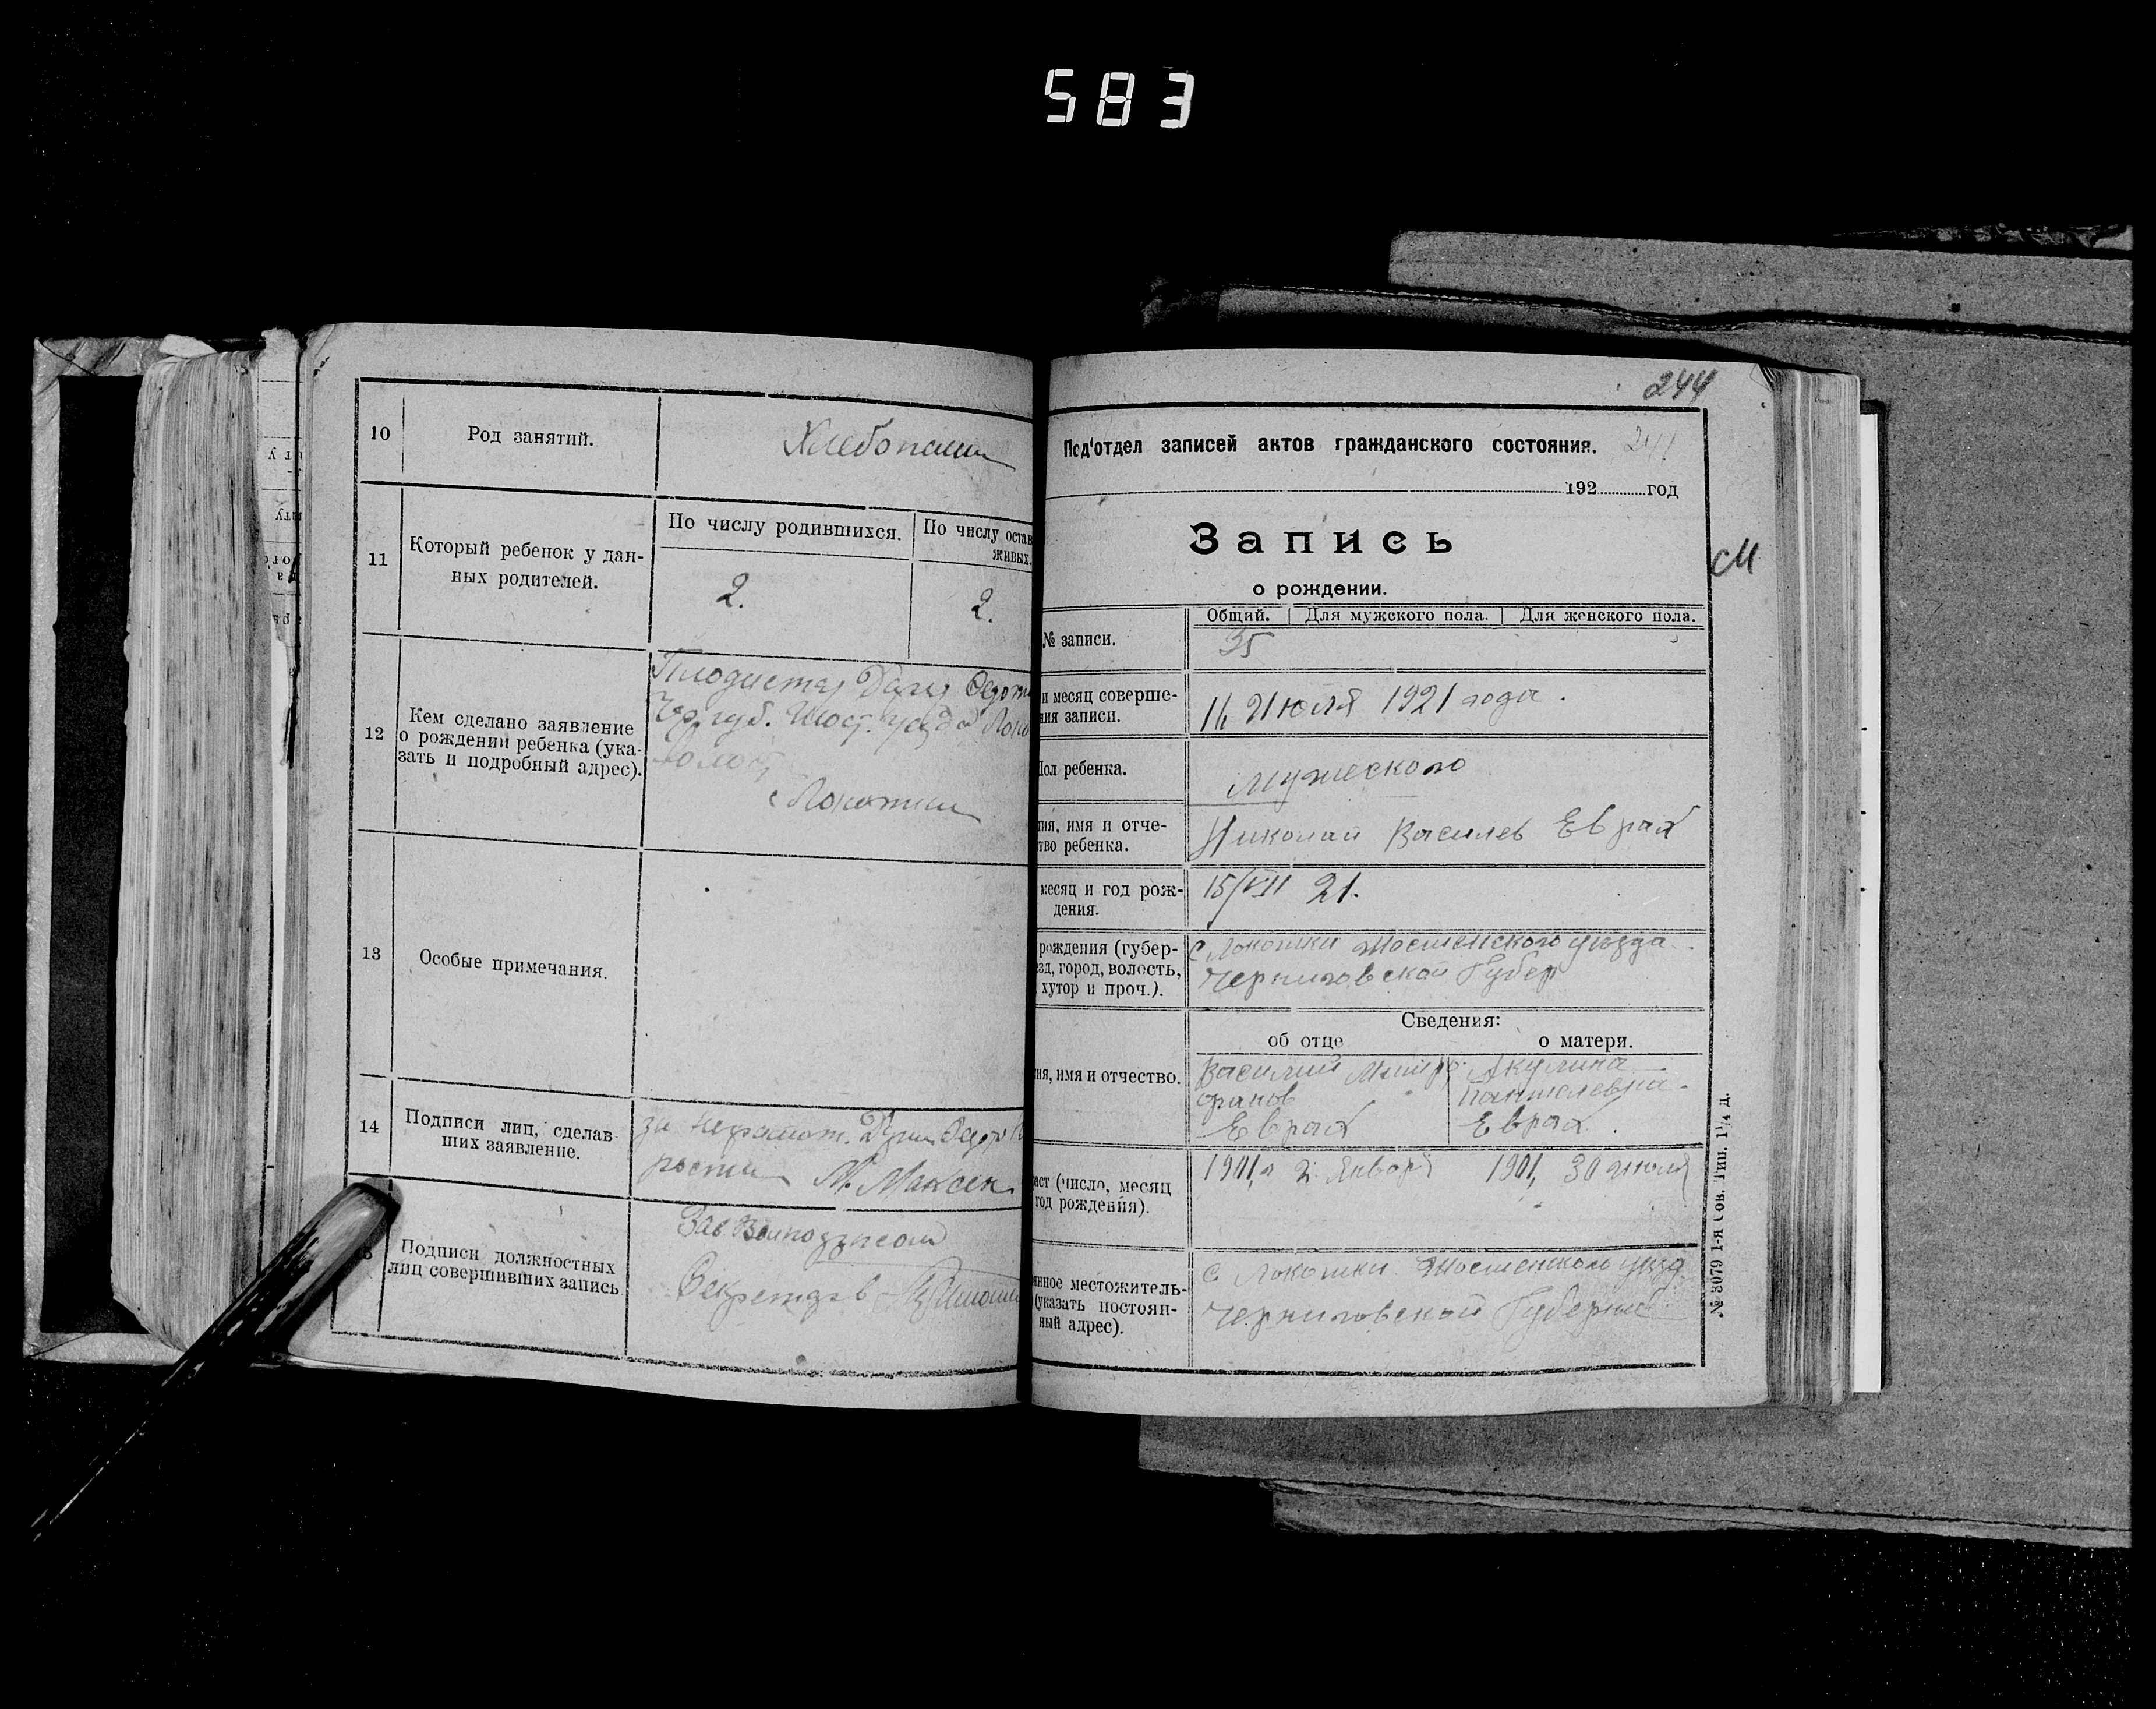 583
10
Род занятий.
Хлебопаш
11
Который ребенок у дан-
ных родителей.
По числу родившихся.
По числу остав
живых.
2.
2.
12
Кем сделано заявление
о рождении ребенка (ука-
зать и подробный адрес).
Дарья
Чер. губ. Шост. уезда Локо
волост
с Локотки
13
Особые примечания.
14
Подписи лиц, сделав
ших заявление.
за неграмот.
М. Максен
Подписи должностных
лиц совершивших запись
Зав
Секретарь
244
Под'отдел записей актов гражданского состояния.
192 год
Запись
о рождении.
М
Общий. Для мужского пола. Для женского пола.
№ записи.
35
и месяц соверше-
ния записи.
Июля 1921 года.
Пол ребенка.
мужеского
ия, имя и отче-
тво ребенка.
Николай Василев Еврах
месяц и год рож-
дения.
15/VII 21.
рождения (губер-
зд, город, волость,
хутор и проч.).
с Локотки Шостенского уезда
Черниговской Губер
Сведения:
об отце
о матери.
ия, имя и отчество.
Василий Митро
фанов
Еврах
Акулина
Пантелевна
Еврах.
аст (число, месяц
год рождения).
1901 г 2. Января
1901, 30
нное местожитель-
(указать постоян-
ный адрес).
с Локотки Шостенского уезд
Черниговской Губернии
№ 3079 1-я Сов. Тип. 1¹/₄ д.